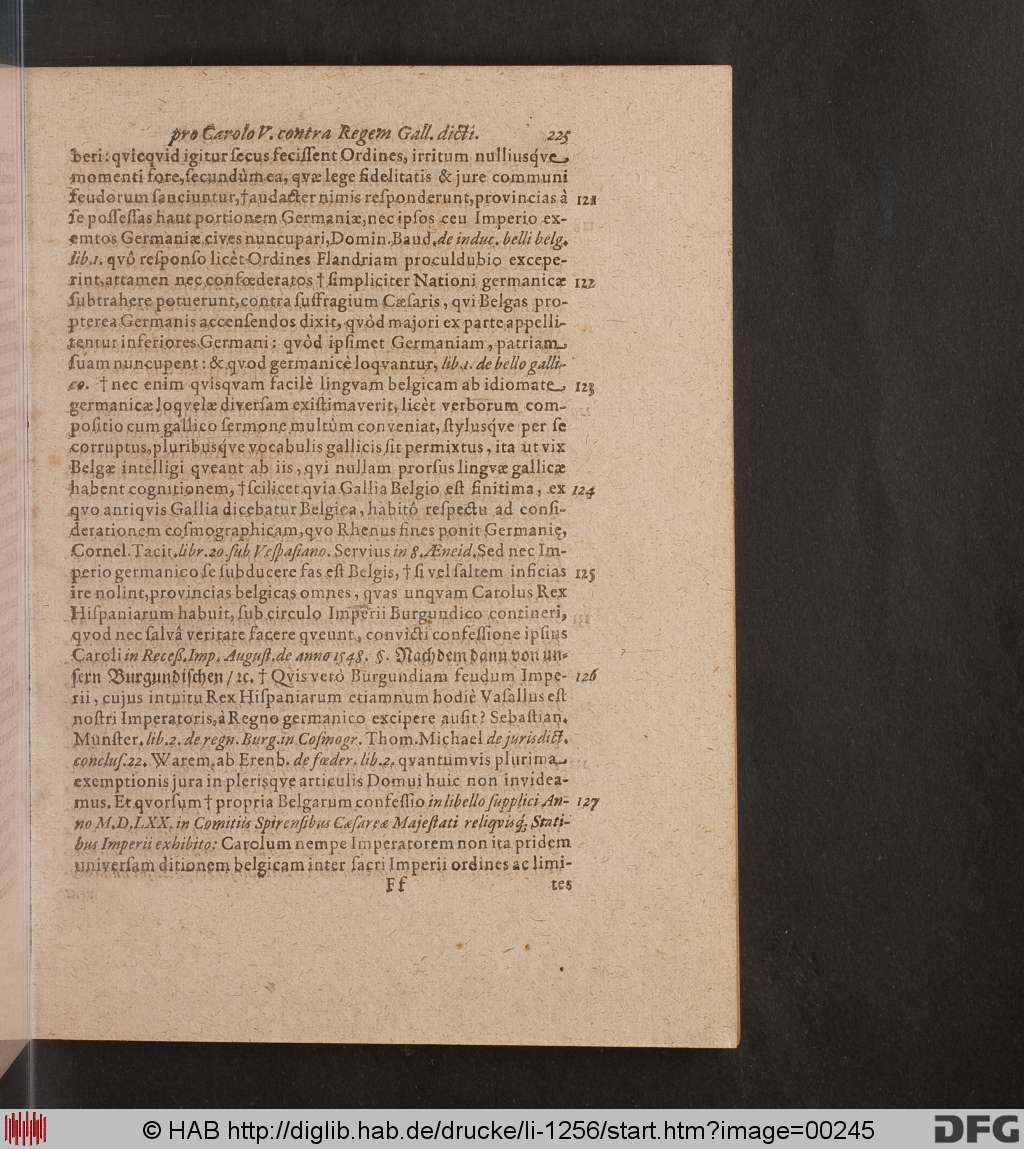 pro Carolo V. contra Regem Gall. dicti. 225
beri: qvicqvid igitur ſecus feciſſent Ordines, irritum nulliusq́ve
momenti fore, ſecundùm ea, qvæ lege fidelitatis & jure communi
feudorum ſanciuntur, † audacter nimis reſponderunt, provincias à 121
ſe poſſeſſas haut portionem Germaniæ, nec ipſos ceu Imperio ex-
emtos Germaniæ cives nuncupari, Domin. Baud. de induc. belli belg.
lib. 1. qvô reſponſo licèt Ordines Flandriam proculdubio excepe-
rint, attamen nec confœderatos † ſimpliciter Nationi germanicæ 122
ſubtrahere potuerunt, contra ſuffragium Cæſaris, qvi Belgas pro-
pterea Germanis accenſendos dixit, qvòd majori ex parte appelli-
tentur inferiores Germani: qvòd ipſimet Germaniam, patriam
ſuam nuncupent: & qvod germanicè loqvantur, lib. 1. de bello galli-
co. † nec enim qvisqvam facilè lingvam belgicam ab idiomate 123
germanicæ loqvelæ diverſam exiſtimaverit, licèt verborum com-
poſitio cum gallico ſermone multùm conveniat, ſtylusq́ve per ſe
corruptus, pluribusq́ve vocabulis gallicis ſit permixtus, ita ut vix
Belgæ intelligi qveant ab iis, qvi nullam prorſus lingvæ gallicæ
habent cognitionem, † ſcilicet qvia Gallia Belgio eſt finitima, ex 124
qvo antiqvis Gallia dicebatur Belgica, habitô reſpectu ad conſi-
derationem coſmographicam, qvo Rhenus fines ponit Germanię,
Cornel. Tacit. libr. 20. ſub Veſpaſiano. Servius in 8. Æneid. Sed nec Im-
perio germanico ſe ſubducere fas eſt Belgis, † ſi vel ſaltem inficias 125
ire nolint, provincias belgicas omnes, qvas unqvam Carolus Rex
Hiſpaniarum habuit, ſub circulo Imperii Burgundico contineri,
qvod nec ſalvâ veritate facere qveunt, convicti confeſſione ipſius
Caroli in Receß. Imp. Auguſt. de anno 1548. §. Nachdem dann von un-
ſern Burgundiſchen / ꝛc. † Qvis verò Burgundiam feudum Impe- 126
rii, cujus intuitu Rex Hiſpaniarum etiamnum hodiè Vaſallus eſt
noſtri Imperatoris, à Regno germanico excipere auſit? Sebaſtian.
Münſter. lib. 2. de regn. Burg. in Coſmogr. Thom. Michael de jurisdict.
concluſ. 22. Warem. ab Erenb. de fœder. lib. 2. qvantumvis plurima
exemptionis jura in plerisqve articulis Domui huic non invidea-
mus. Et qvorſum † propria Belgarum confeſſio in libello ſupplici An- 127
no M.D.LXX. in Comitiis Spirenſibus Cæſareæ Majeſtati reliqvisq́; Stati-
bus Imperii exhibito: Carolum nempe Imperatorem non ita pridem
univerſam ditionem belgicam inter ſacri Imperii ordines ac limi-
Ff tes
© HAB http://diglib.hab.de/drucke/li-1256/start.htm?image=00245
DFG